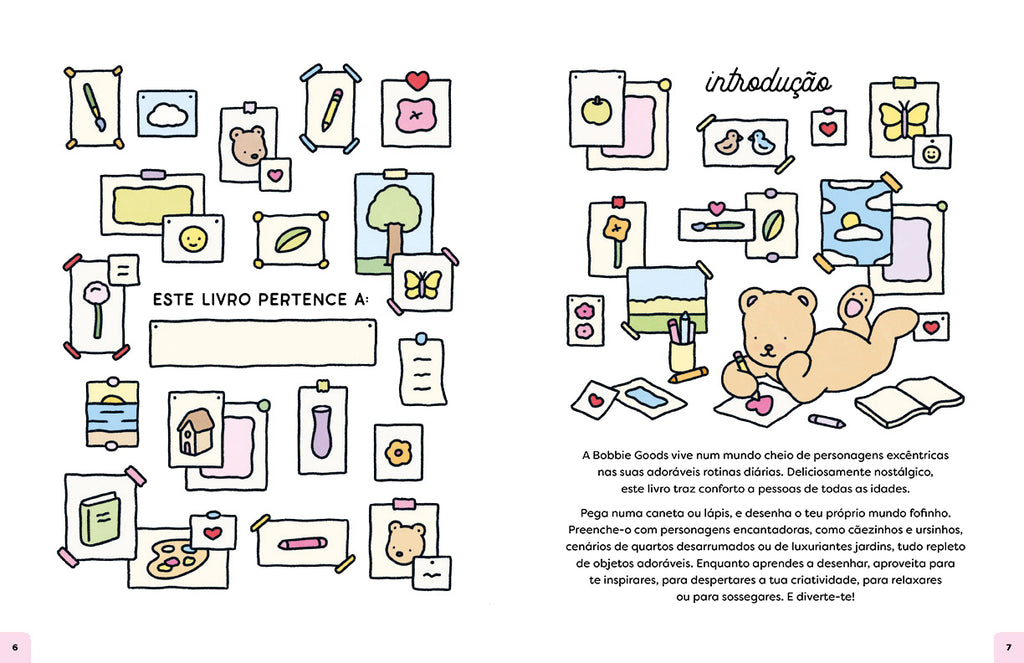 ESTE LIVRO PERTENCE A:
6
introdução
A Bobbie Goods vive num mundo cheio de personagens excêntricas
nas suas adoráveis rotinas diárias. Deliciosamente nostálgico,
este livro traz conforto a pessoas de todas as idades.
Pega numa caneta ou lápis, e desenha o teu próprio mundo fofinho.
Preenche-o com personagens encantadoras, como cãezinhos e ursinhos,
cenários de quartos desarrumados ou de luxuriantes jardins, tudo repleto
de objetos adoráveis. Enquanto aprendes a desenhar, aproveita para
te inspirares, para despertares a tua criatividade, para relaxares
ou para sossegares. E diverte-te!
7